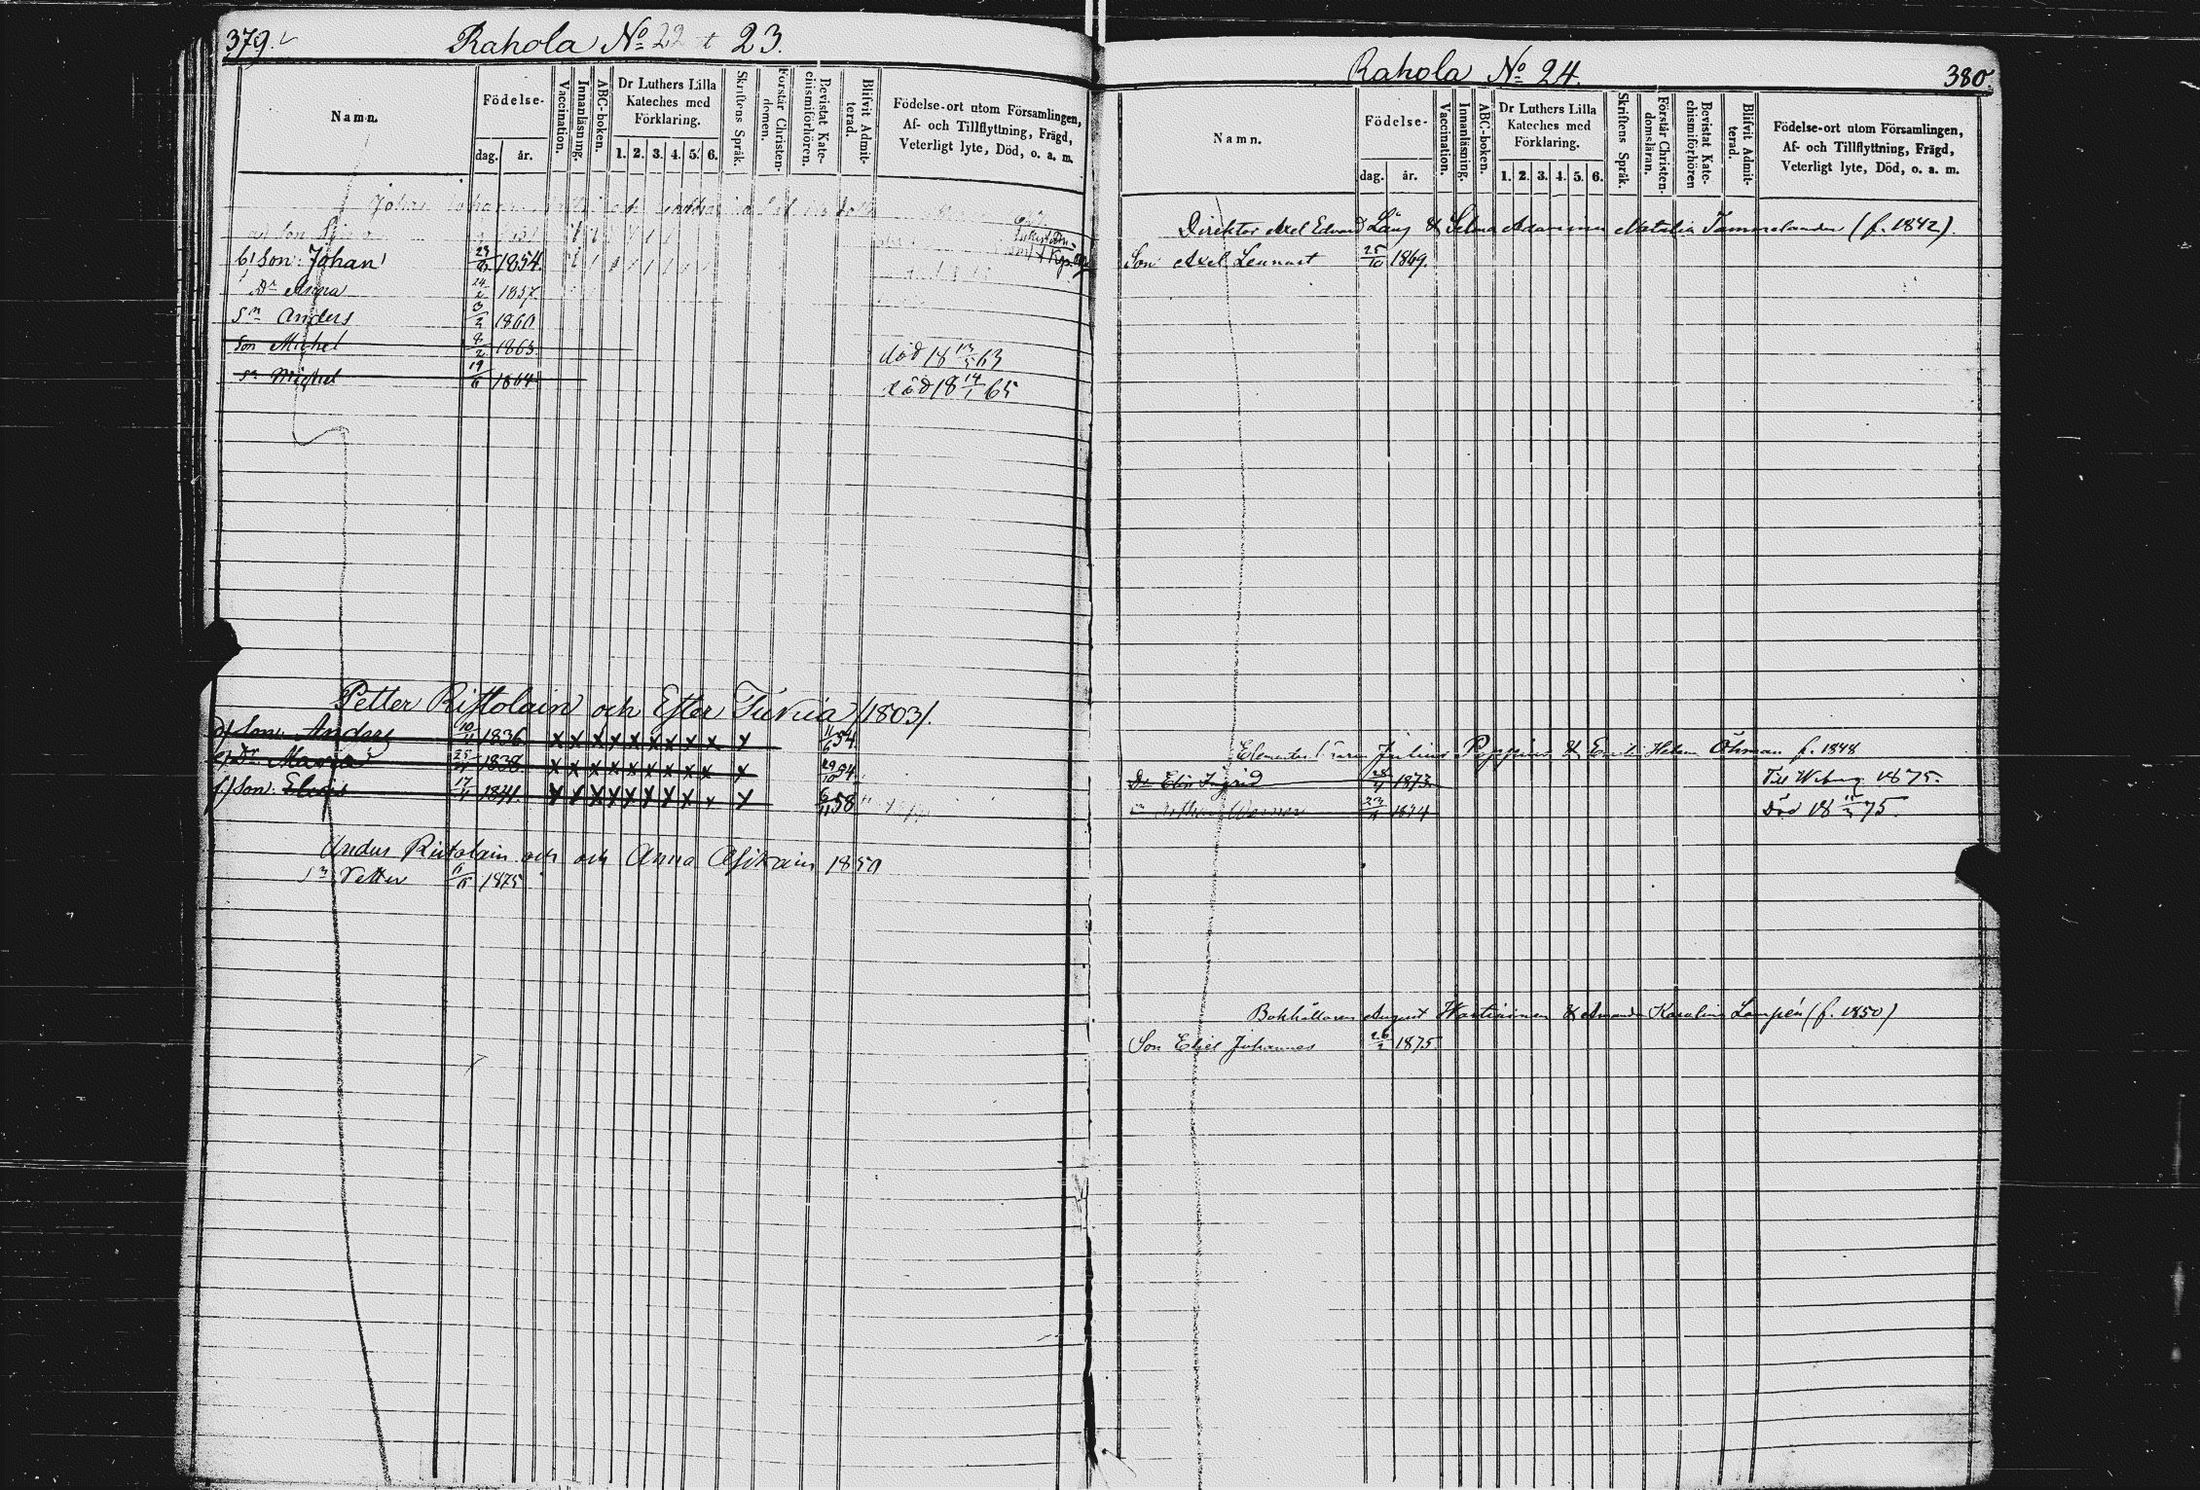 379.
Rahola No 22 et 23.
Namn.
Födelse-
dag. år.
Vaccination.
Innanläsning.
ABC-boken.
Dr Luthers Lilla Kateches med Förklaring.
1. 2. 3. 4. 5. 6.
Skriftens Språk.
Förstår Christendomen.
Bevistat Katechismiförhören.
Blifvit Admitterad.
Födelse-ort utom Församlingen, Af- och Tillflyttning, Frägd, Veterligt lyte, Död, o. a. m.
b) Son: Johan 1854.
Dr Anna 24/2 1857
Sn Anders 3/2 1860
Son Michel 8/2 1863. död 18 13/5 63
Sn Michel 19/6 1864 död 18 14/1 65
Petter Ristolain och Ester Tuvia /1803/.
d) Son: Anders 10/11 1836 x x x x x x x x x x 11/6 54
e) Dr Maria 25/11 1838 x x x x x x x x x x 29/10 54
f) Son: Elias 17/4 1841 x x x x x x x x x x 6/11 58
Anders Ristolain och och Anna Asikain 1850
Sn Petter 1875
Rahola No 24.
380.
Namn.
Födelse-
dag. år.
Vaccination.
Innanläsning.
ABC-boken.
Dr Luthers Lilla Kateches med Förklaring.
1. 2. 3. 4. 5. 6.
Skriftens Språk.
Förstår Christendomsläran.
Bevistat Katechismiförhören
Blifvit Admitterad.
Födelse-ort utom Församlingen, Af- och Tillflyttning, Frägd, Veterligt lyte, Död, o. a. m.
Direktor Axel Edvard Lång & Selma Natalia Tammelander (f. 1842).
Son Axel Lennart 25/10 1869.
Julius Poppius & Emilia Helena Öhman f. 1848
Dr Elin Ingrid 28/4 1873 Till Wiborg 1875.
1874 Död 18 75.
Bokhållaren August Hartikainen & Amanda Karolina Lampén (f. 1850)
Son Eliel Johannes 26/2 1875